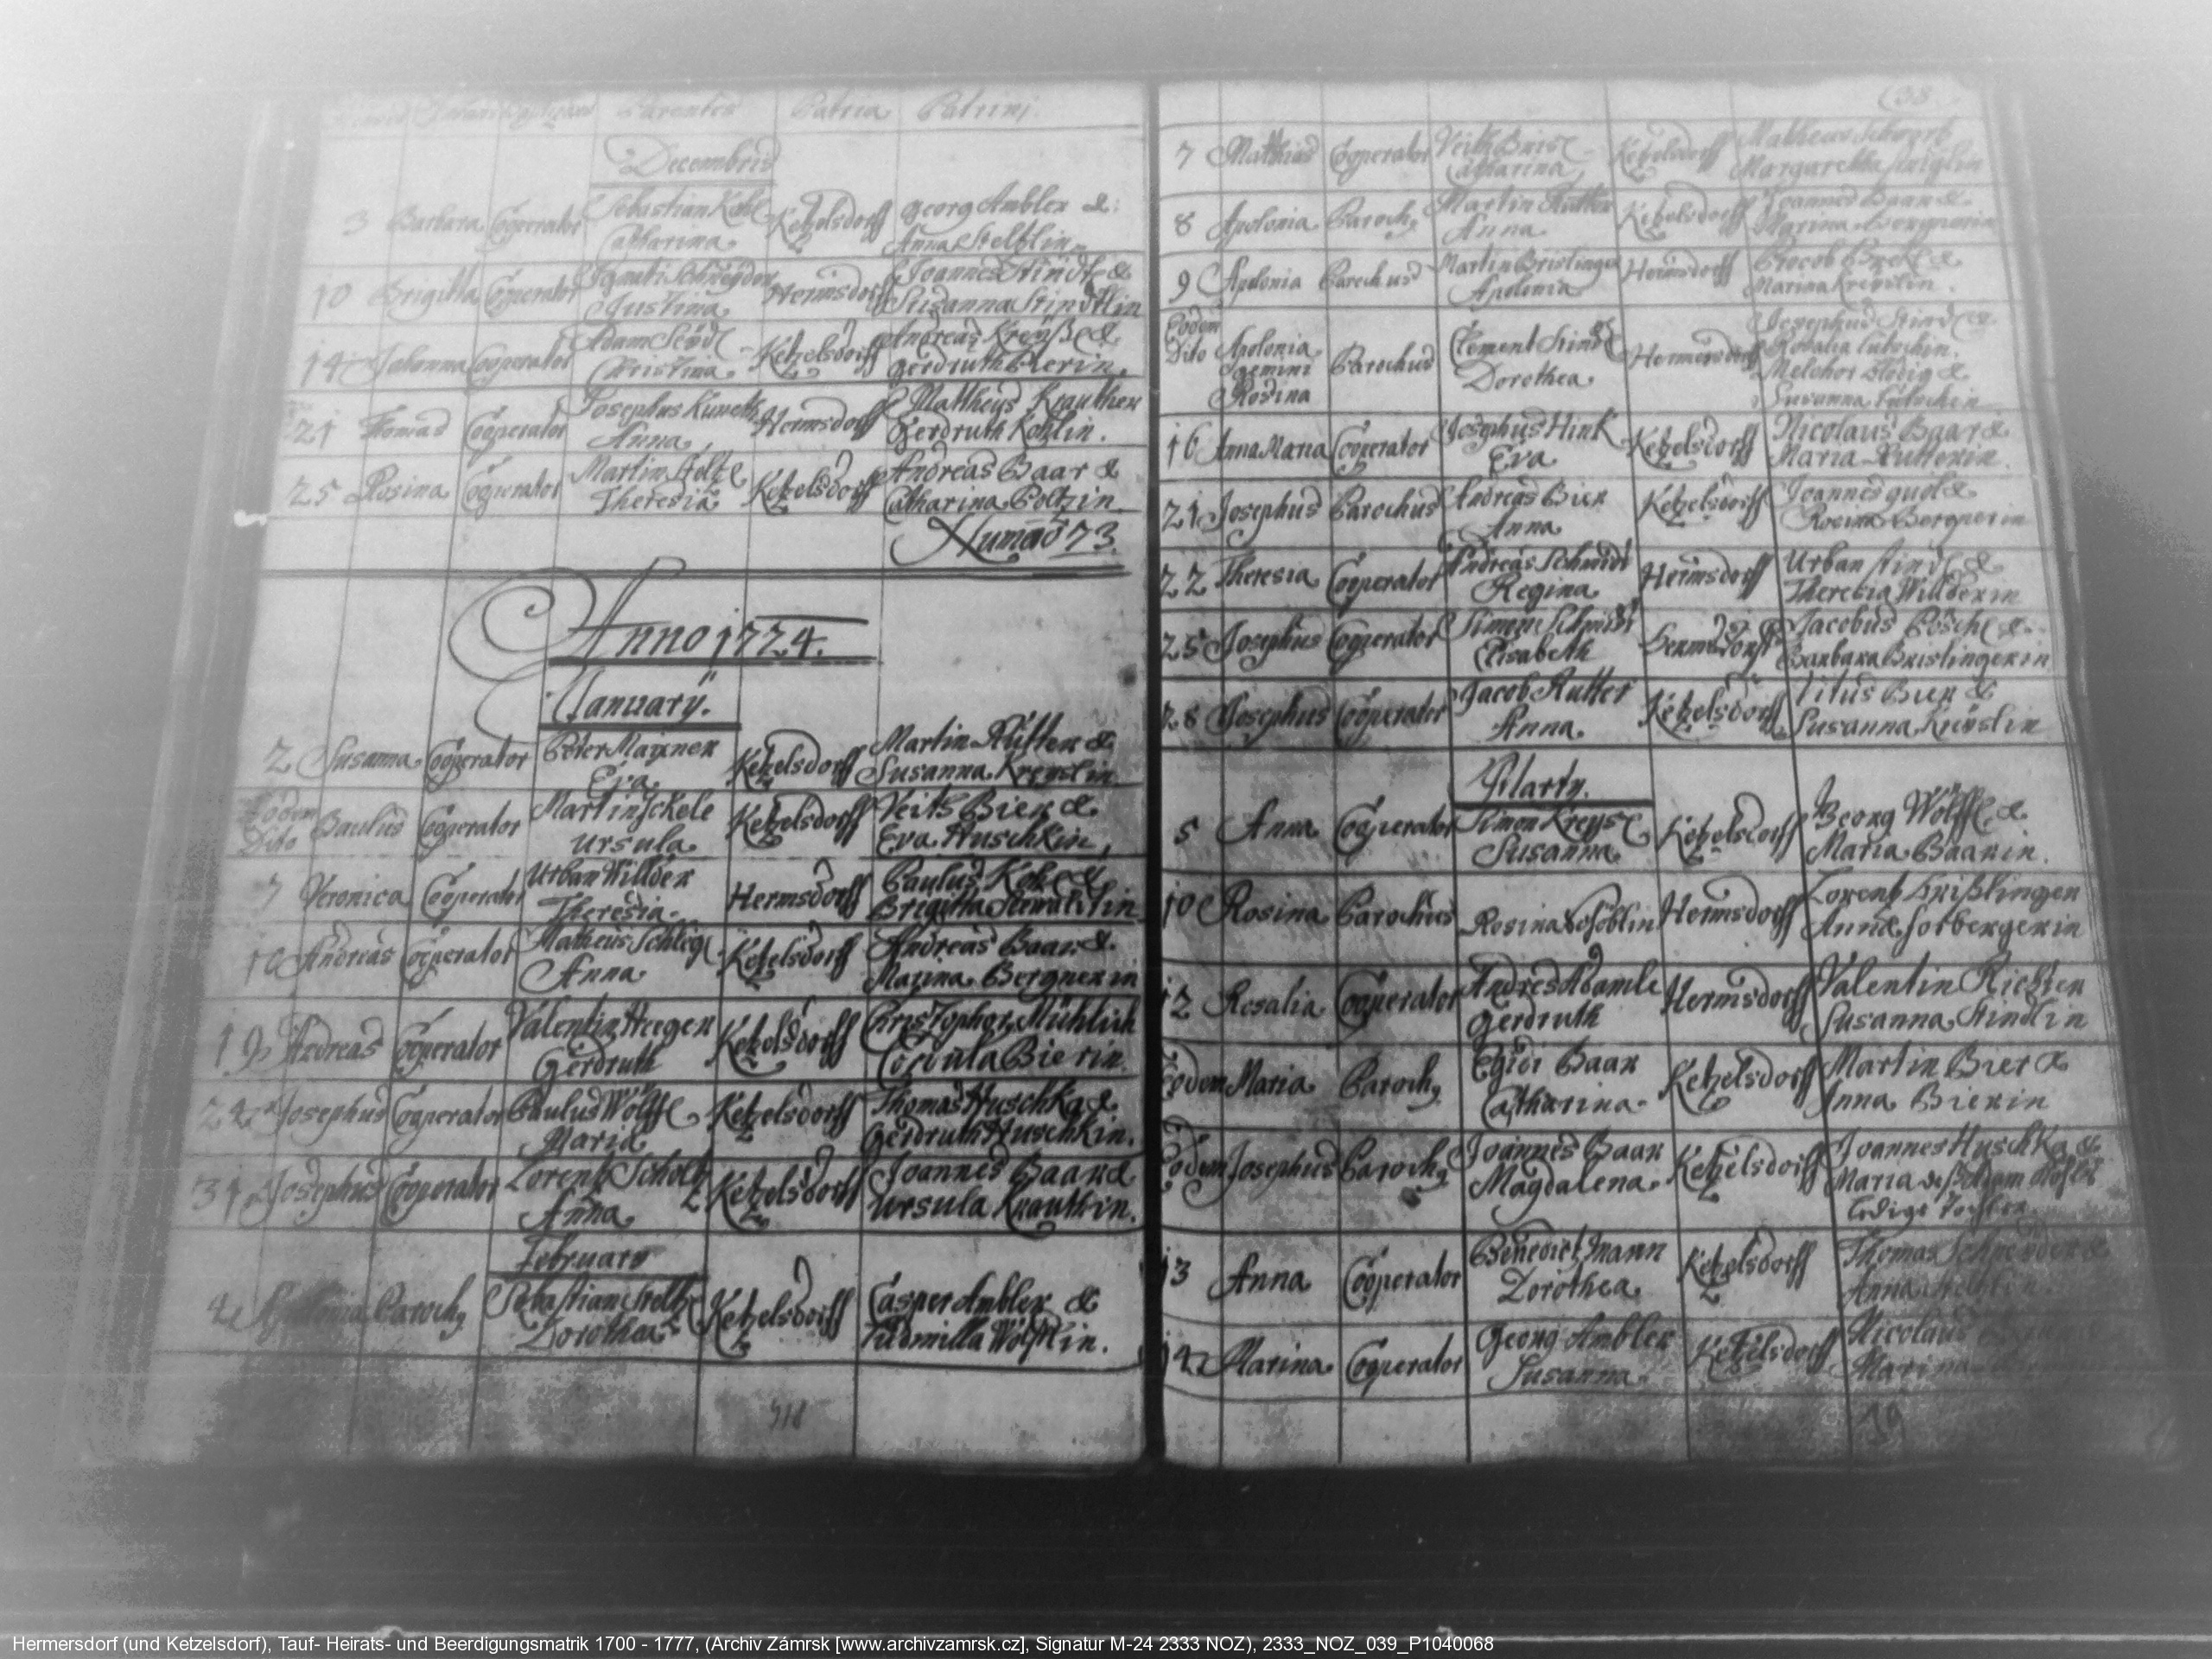 Parentes Patria Patrini
Decembris
3 Barbara Cooperator Sebastian Kohl Ketzelsdorff Georg Ambler &
Catharina Anna Steltzlin
10 Brigitta Cooperator Schneyder Hermsdorff Joannes Stindl &
Justina Susanna Stindtlin
14 Johanna Cooperator Adam Ketzelsdorff Andreas Kreyß &
Christina Gerdruth Bierin.
21 Thomas Cooperator Josephus Hermsdorff Mattheus Krauther
Anna Gerdruth Kohlin.
25 Rosina Cooperator Martin Steltzl Ketzelsdorff Andreas Baar &
Theresia Catharina
73.
Anno 1724.
January.
2 Susanna Cooperator Peter Maixner Ketzelsdorff Martin Rutter &
Eva Susanna Kreyslin
Eodem Martin Jckele Veith Bier &
Dito Paulus Cooperator Ursula Ketzelsdorff Eva Huschkin,
7 Veronica Cooperator Urban Willder Hermsdorff Paulus
Theresia Brigitta
10 Andreas Cooperator Matheus Schlegl Ketzelsdorff Andreas Baar &
Anna Marina Bergnerin
19 Andreas Cooperator Valentin Ketzelsdorff Christophor Mühlich
Gerdruth Bierin.
24 Josephus Cooperator Paulus Wölffl Ketzelsdorff Thomas Huschka &
Maria Gerdruth Huschkin.
31 Josephus Cooperator Lorentz Scholtz Ketzelsdorff Joannes Baar &
Anna Ursula Krauthin.
February
4 Apollonia Paroch9 Sebastian Steltzl Ketzelsdorff Casper Ambler &
Dorothea Ludmilla Wölfflin.
(38
7 Matthias Cooperator Veith Ketzelsdorff Matheus
Catharina Margaretha
8 Apolonia Paroch9 Martin Rutter Ketzelsdorff Joannes Baar &
Anna Marina Bergnerin
9 Apolonia Parochus Martin Bristinger Hermsdorff
Apolonia Marina
Eodem Josephus Stindl &
Dito Apolonia Parochus Clement Stindl Hermersdorff Rosalia
gemini Dorothea Melchor &
Rosina Susanna
16 Anna Maria Cooperator Josephus Hink Ketzelsdorff Nicolaus Baar &
Eva Maria Rutterin.
21 Josephus Parochus Andreas Bier Ketzelsdorff Joannes
Anna Rosina Bergnerin
22 Theresia Cooperator Andreas Schmidt Hermsdorff Urban Stindl &
Regina Theresia Willderin
25 Josephus Cooperator Simon Schmidt Hermsdorff Jacobus Pöschl &
Elisabeth Barbara Bristingerin
28 Josephus Cooperator Jacob Rutter Ketzelsdorff Vitus Bier &
Anna. Susanna
Marty.
5 Anna Cooperator Simon Kreysl Ketzelsdorff Georg Wölffl &
Susanna Maria Baarin.
10 Rosina Parochus Hermsdorff Lorentz Brißlingen
Rosina Anna
12 Rosalia Cooperator Andres Adamle Hermsdorff Valentin Richter
Gerdruth Susanna Stindlin
Eodem Maria Paroch9 Egidi Baar Ketzelsdorff Martin Bier &
Catharina. Anna Bierin
Eodem Josephus Paroch9 Joannes Baar Ketzelsdorff Joannes Huschka &
Magdalena. Maria
13 Anna Cooperator Benedict mann Ketzelsdorff Thomas Schneyder &
Dorothea. Anna
14 Marina Cooperator Georg Ambler Ketzelsdorff Nicolaus
Susanna Marina
Hermersdorf (und Ketzelsdorf), Tauf- Heirats- und Beerdigungsmatrik 1700 - 1777, (Archiv Zámrsk [www.archivzamrsk.cz], Signatur M-24 2333 NOZ), 2333_NOZ_039_P1040068